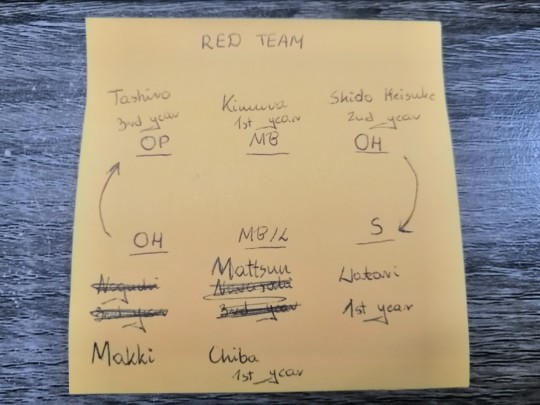 RED TEAM
Tashiro Kimura Shido Heisuke
3rd year 1st year 2nd year
OP MB OH
OH MB/L S
Mattsun
Watari
3rd year 3rd year 1st year
Makki Chiba
1st year